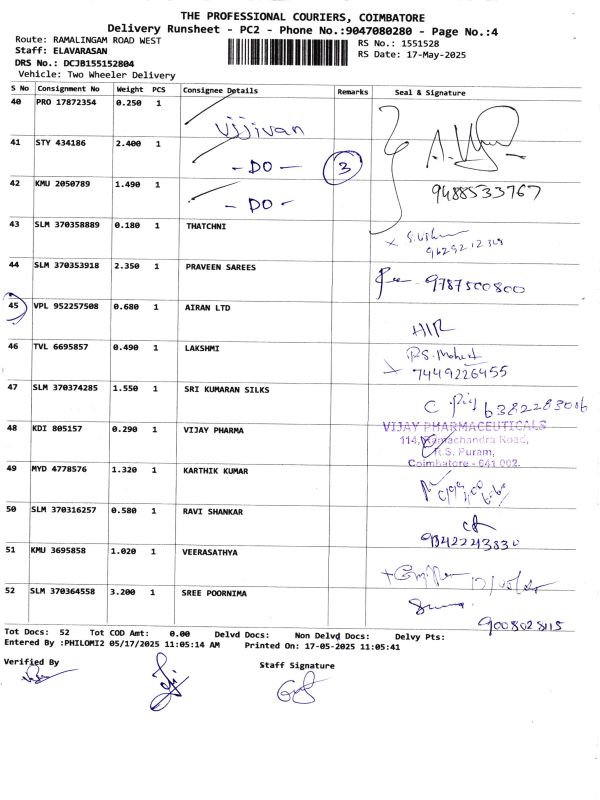 THE PROFESSIONAL COURIERS, COIMBATORE
Delivery Runsheet - PC2 - Phone No.:9047080280 - Page No.:4
Route: RAMALINGAM ROAD WEST
Staff: ELAVARASAN
DRS No.: DCJB155152804
Vehicle: Two Wheeler Delivery
RS No.: 1551528
RS Date: 17-May-2025
S No Consignment No Weight PCS Consignee Details Remarks Seal & Signature
40 PRO 17872354 0.250 1 vijivan
41 STY 434186 2.400 1 - DO - 3
42 KMU 2050789 1.490 1 - DO - 9488533767
43 SLM 370358889 0.180 1 THATCHNI
44 SLM 370353918 2.350 1 PRAVEEN SAREES 9787500800
45 VPL 952257508 0.680 1 AIRAN LTD
46 TVL 6695857 0.490 1 LAKSHMI 7449226455
47 SLM 370374285 1.550 1 SRI KUMARAN SILKS 6382283006
48 KDI 805157 0.290 1 VIJAY PHARMA
VIJAY PHARMACEUTICALS
114, Ramachandra Road,
R.S. Puram,
Coimbatore - 641 002.
49 MYD 4778576 1.320 1 KARTHIK KUMAR
50 SLM 370316257 0.580 1 RAVI SHANKAR 9842243830
51 KMU 3695858 1.020 1 VEERASATHYA
52 SLM 370364558 3.200 1 SREE POORNIMA
Tot Docs: 52 Tot COD Amt: 0.00 Delvd Docs: Non Delvd Docs: Delvy Pts:
Entered By :PHILOMI2 05/17/2025 11:05:14 AM Printed On: 17-05-2025 11:05:41
Verified By Staff Signature